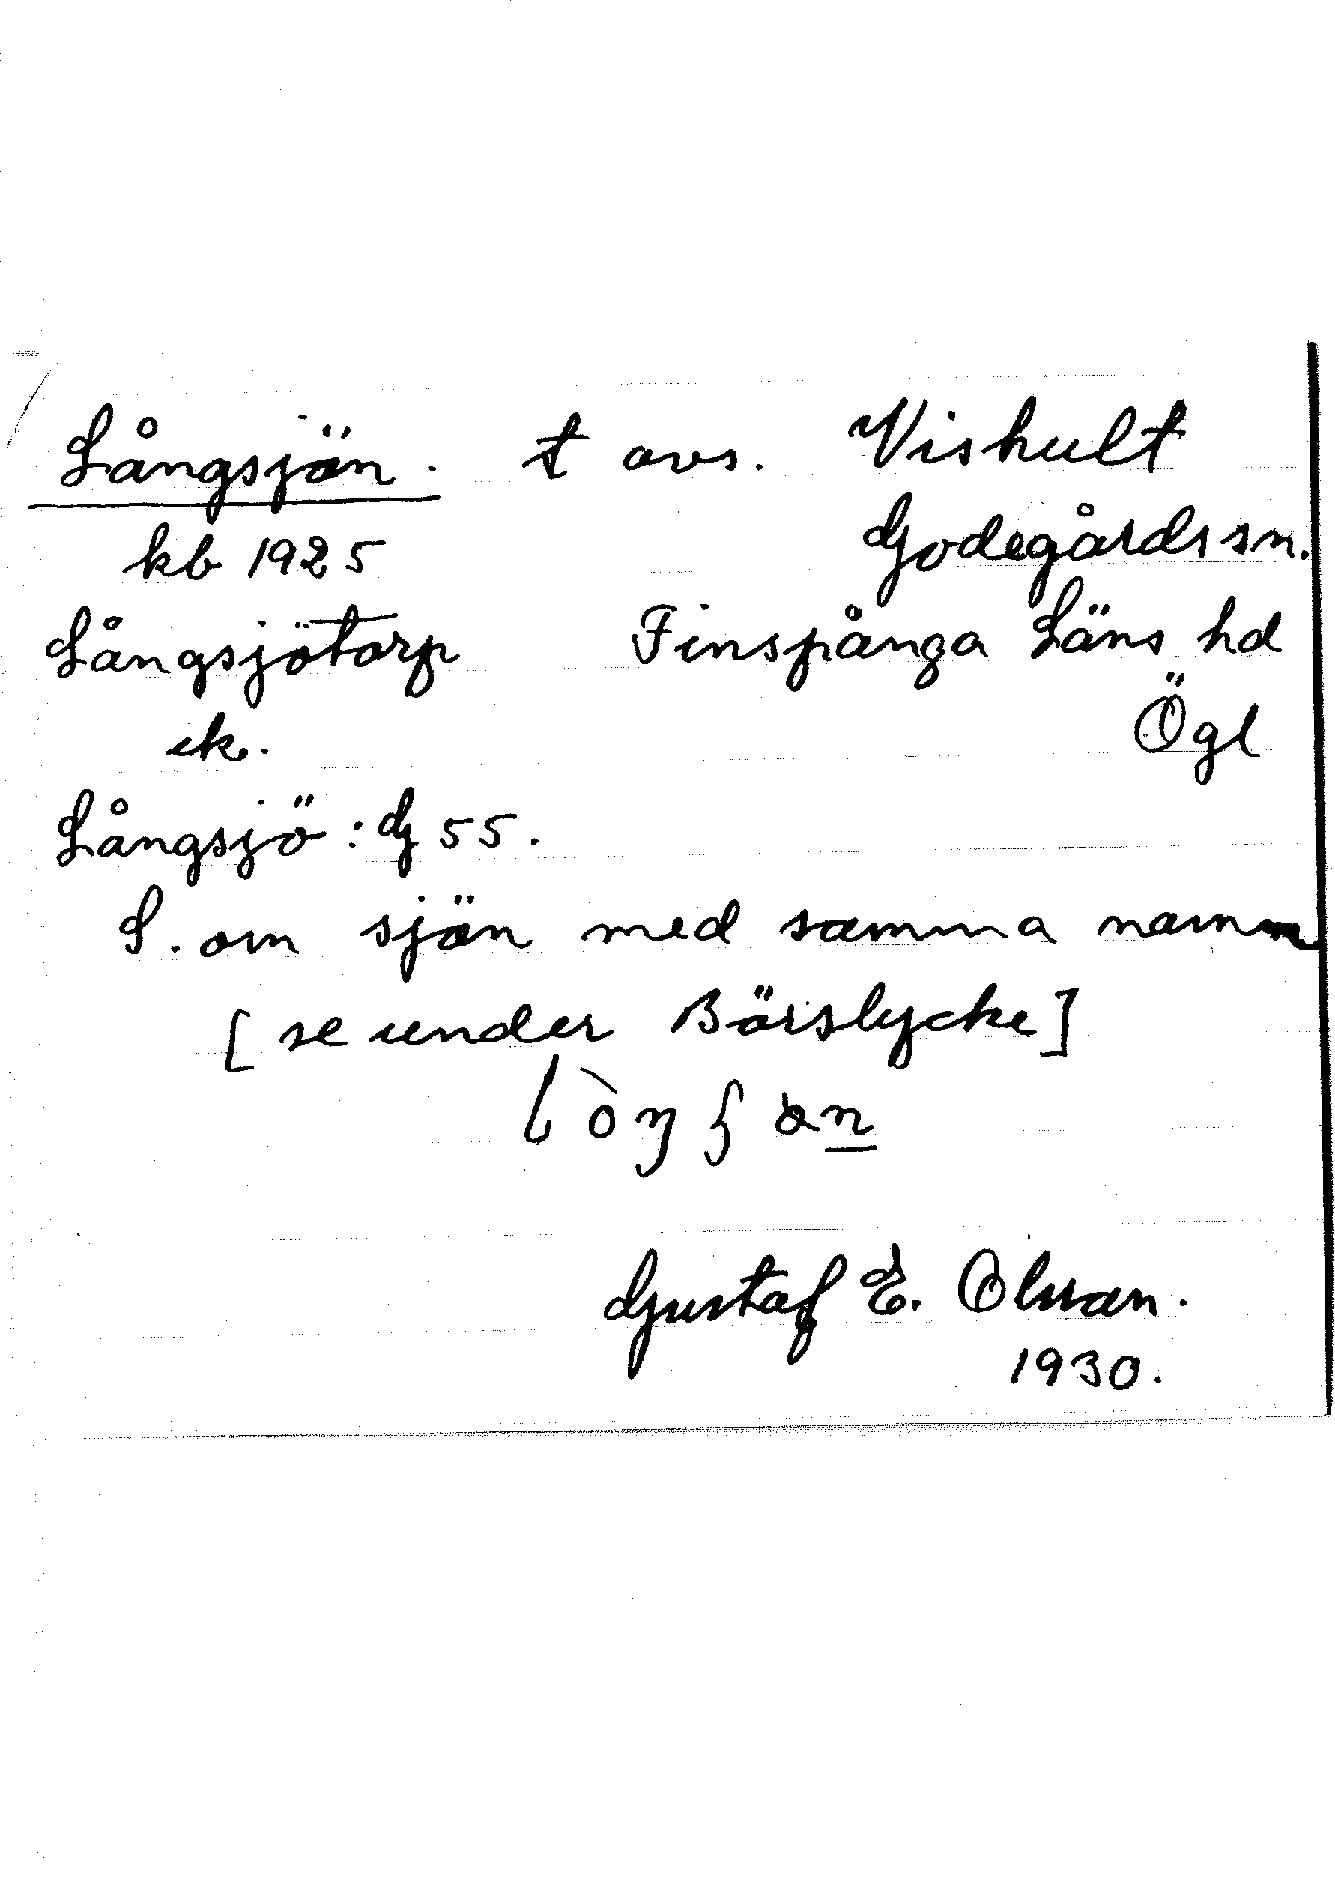 Långsjön. t avs. Vishult
kb 1925 Godegårds sn.
Långsjötorp Finspånga Läns hd
ek. Ögl
Långsjö : G 55.
S. om sjön med samma namn
[se under Börslycke]
Gustaf E. Olsson.
1930.